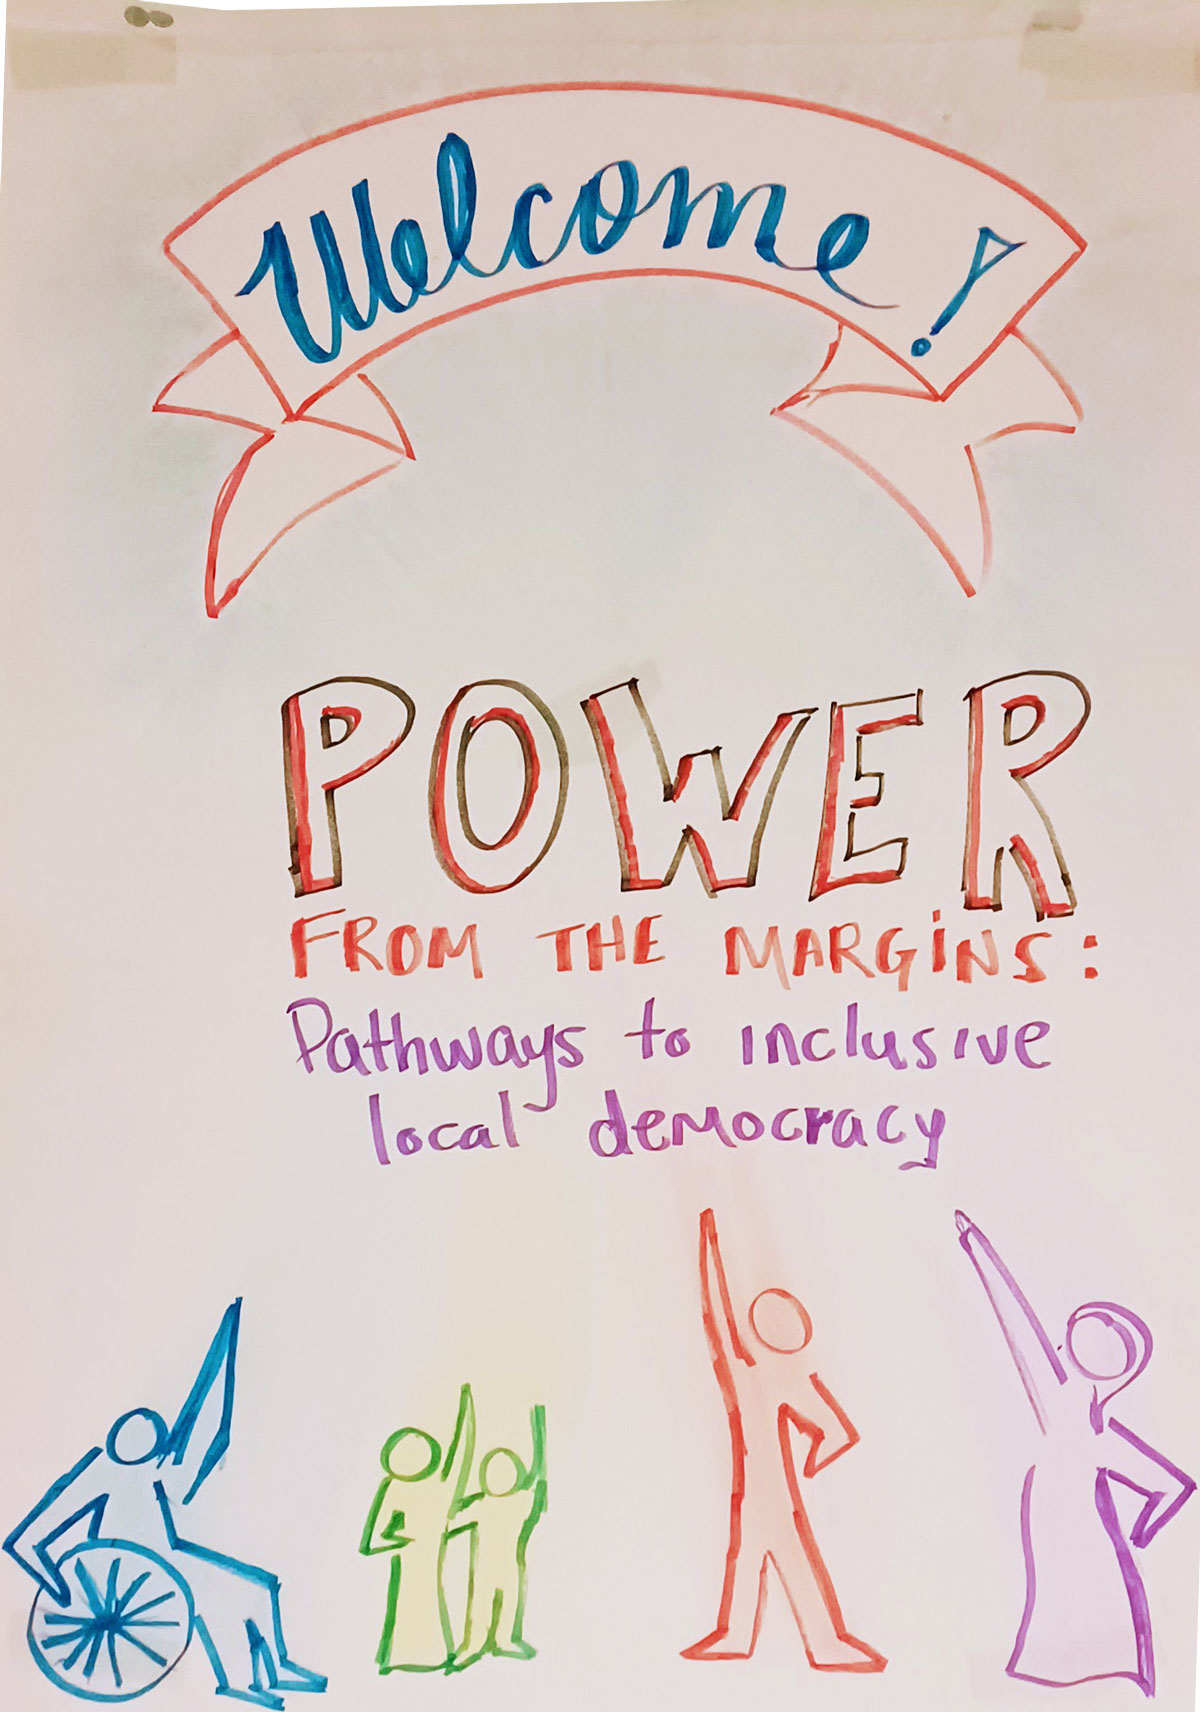 Welcome!
POWER
FROM THE MARGiNS:
Pathways to inclusive
local democracy